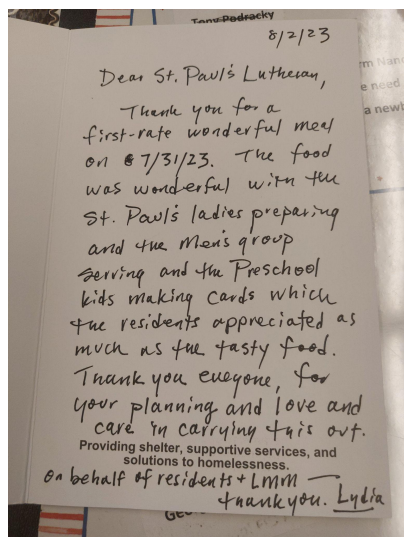 Tony Podracky
8/2/23
Dear St. Paul's Lutheran,
Thank you for a
first-rate wonderful meal
on 7/31/23. The food
was wonderful with the
St. Paul's ladies preparing
and the Men's group
serving and the Preschool
kids making cards which
the residents appreciated as
much as the tasty food.
Thank you everyone, for
your planning and love and
care in carrying this out.
Providing shelter, supportive services, and
solutions to homelessness.
on behalf of residents + LMM —
thank you. Lydia
rm Nan
e need
a newl